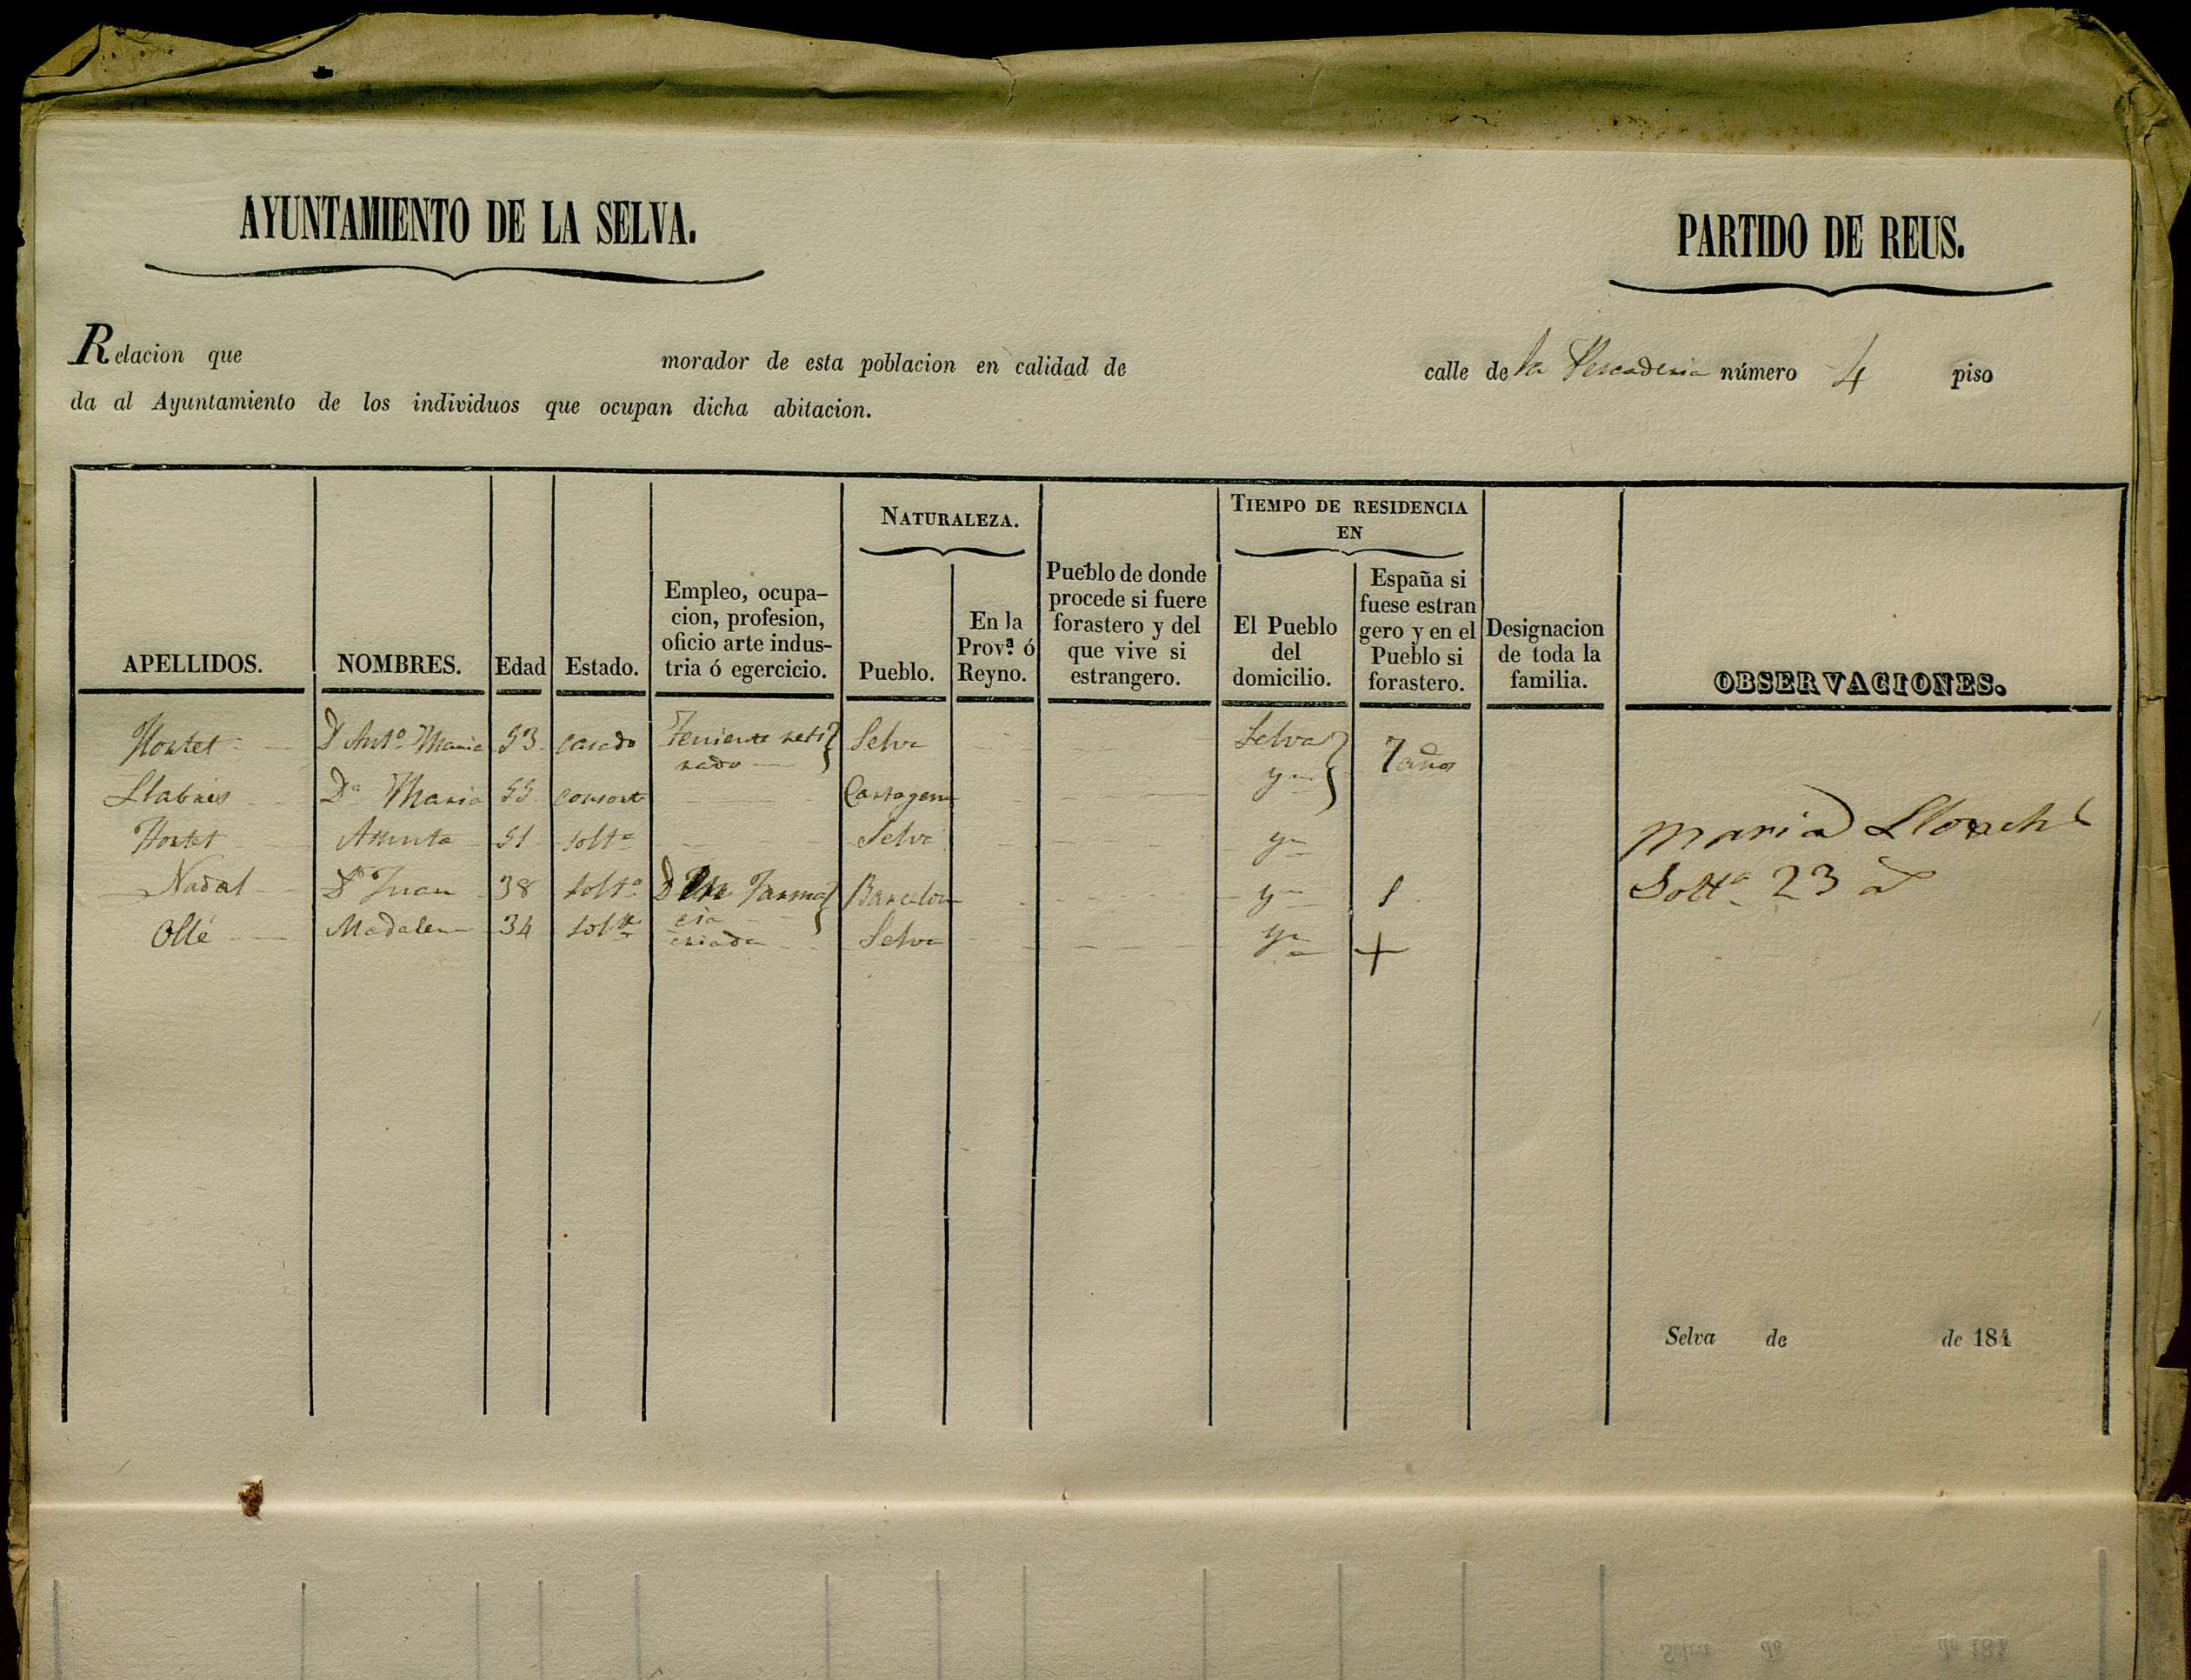 AYUNTAMIENTO DE LA SELVA.
PARTIDO DE REUS.
Relacion que morador de esta poblacion en calidad de calle de la Pescaderia número 4 piso
da al Ayuntamiento de los individuos que ocupan dicha abitacion.
APELLIDOS.
NOMBRES.
Edad
Estado.
Empleo, ocupa-
cion, profesion,
oficio arte indus-
tria ó egercicio.
NATURALEZA.
Pueblo.
En la
Prov.ª ó
Reyno.
Pueblo de donde
procede si fuere
forastero y del
que vive si
estrangero.
TIEMPO DE RESIDENCIA
EN
El Pueblo
del
domicilio.
España si
fuese estran
gero y en el
Pueblo si
forastero.
Designacion
de toda la
familia.
OBSERVACIONES.
Hortet D Antº Maria 53 casado Teniente reti Selva Selva 7 años
rado
Llabres Dª Maria 55 consorte Cartagena yn
Hortet Assunta 51 soltª Selva yn
Nadal Dn Juan 38 soltº D Farma Barcelon yn
cia
Ollé Madalen 34 soltª criada Selva yn +
Maria Llorach
Soltª 23 a
Selva de de 184